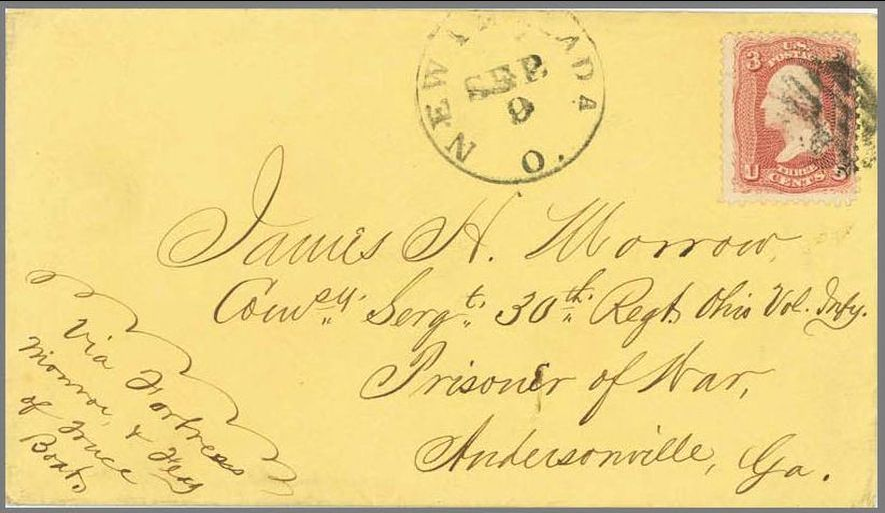 NEW
ADA
SEP
9
O.
3
U.S.
POSTAGE
U
THREE
CENTS
James H. Morrow,
Comsy. Sergt. 30th Regt. Ohio Vol. Infy.
Prisoner of War,
Andersonville, Ga.
Via Fortress
Monroe, & Flag
of Truce
Boat